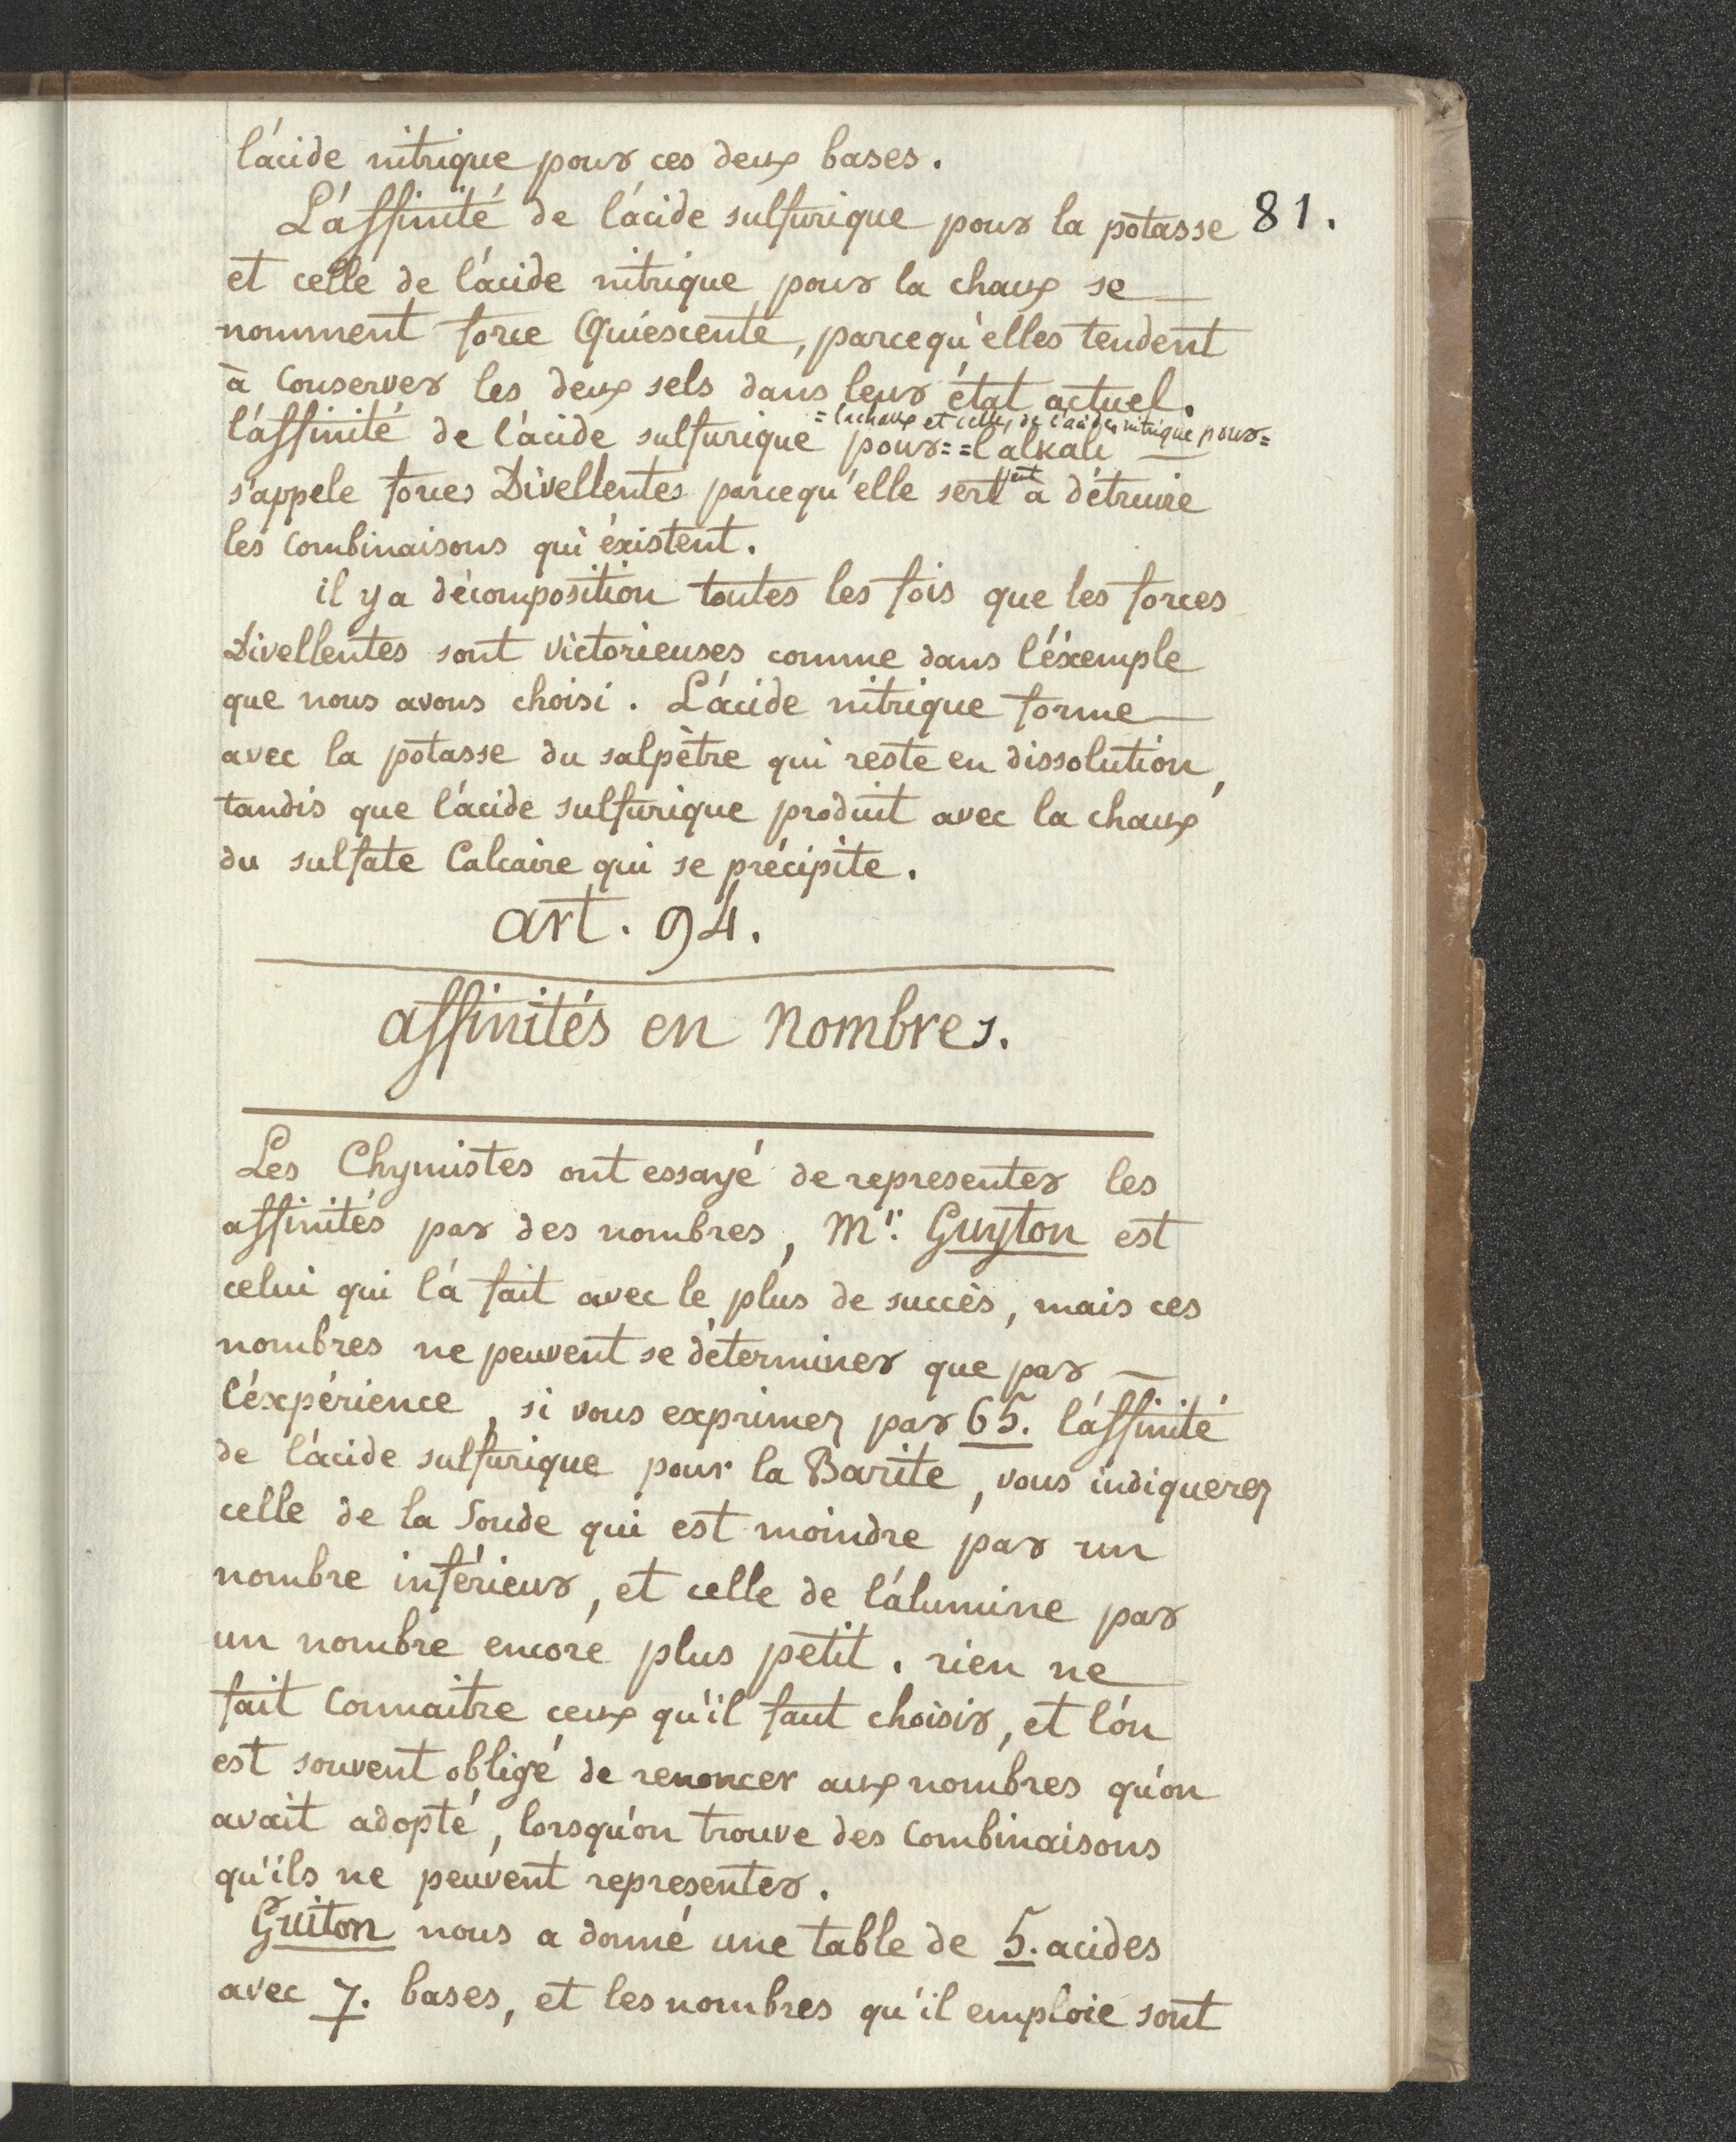 l'acide nitrique pour ces deux bases.
L'affinité de l'acide sulfurique pour la potasse
81.
et celle de l'acide nitrique pour la chaux se
nomment force Quiescente, parcequ'elles tendent
à Conserver les deux sels dans leur état actuel.
=la chaux et celle, de l'acide, nitrique pour=
l'affinité de l'acide sulfurique pour==l'alkali
s'appele forces Divellentes parcequ'elle servent à détruire
les Combinaisons qui éxistent.
il y a décomposition toutes les fois que les forces
Divellentes sont victorieuses comme dans l'éxemple
que nous avons choisi. L'acide nitrique forme
avec la potasse du salpètre qui reste en dissolution,
tandis que l'acide sulfurique produit avec la chaux
du sulfate Calcaire qui se précipite.
art. 94.
affinités en nombres.
Les Chymistes ont essayé de representer les
affinités par des nombres, Mr. Guyton est
celui qui l'a fait avec le plus de succès, mais ces
nombres ne peuvent se déterminer que par
l'éxpérience, si vous exprimez par 65. l'affinité
de l'acide sulfurique pour la Barite, vous indiquerez
celle de la Soude qui est moindre par un
nombre inférieur, et celle de l'alumine par
un nombre encore plus petit. rien ne
fait Connaitre ceux qu'il faut choisir, et l'on
est souvent obligé de renoncer aux nombres qu'on
avait adopté, lorsqu'on trouve des Combinaisons
qu'ils ne peuvent representer.
Guiton nous a donné une table de 5. acides
avec 7. bases, et les nombres qu'il emploie sont